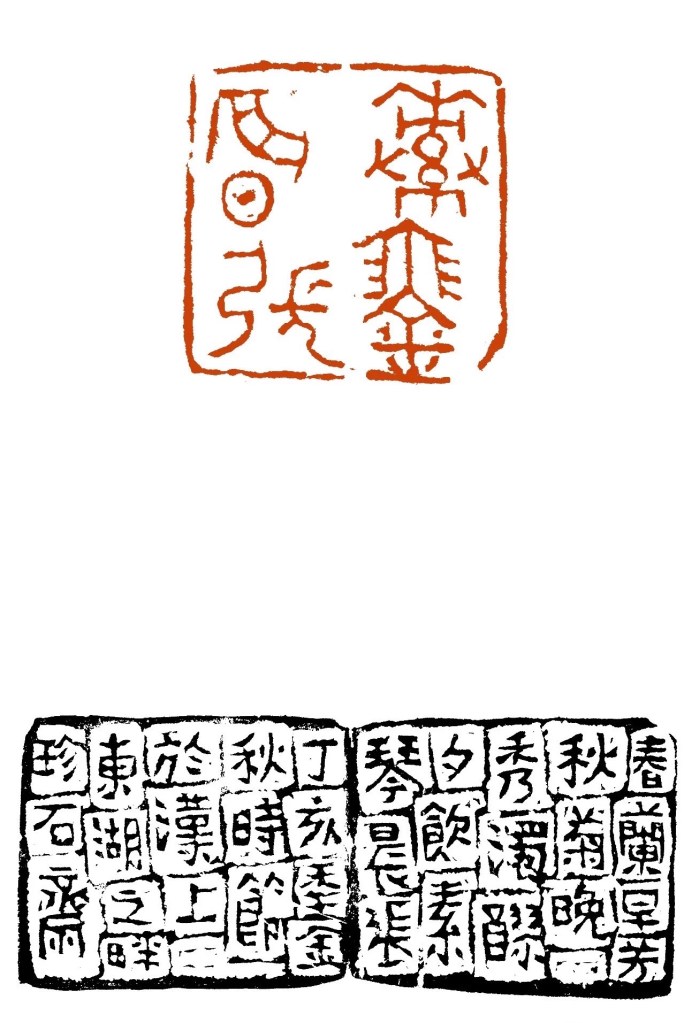 素琴
晨張
春蘭早芳
秋菊晚
秀濁醪
夕飲素
琴晨張
丁亥金
秋時節
於漢上
東湖之畔
珍石齋